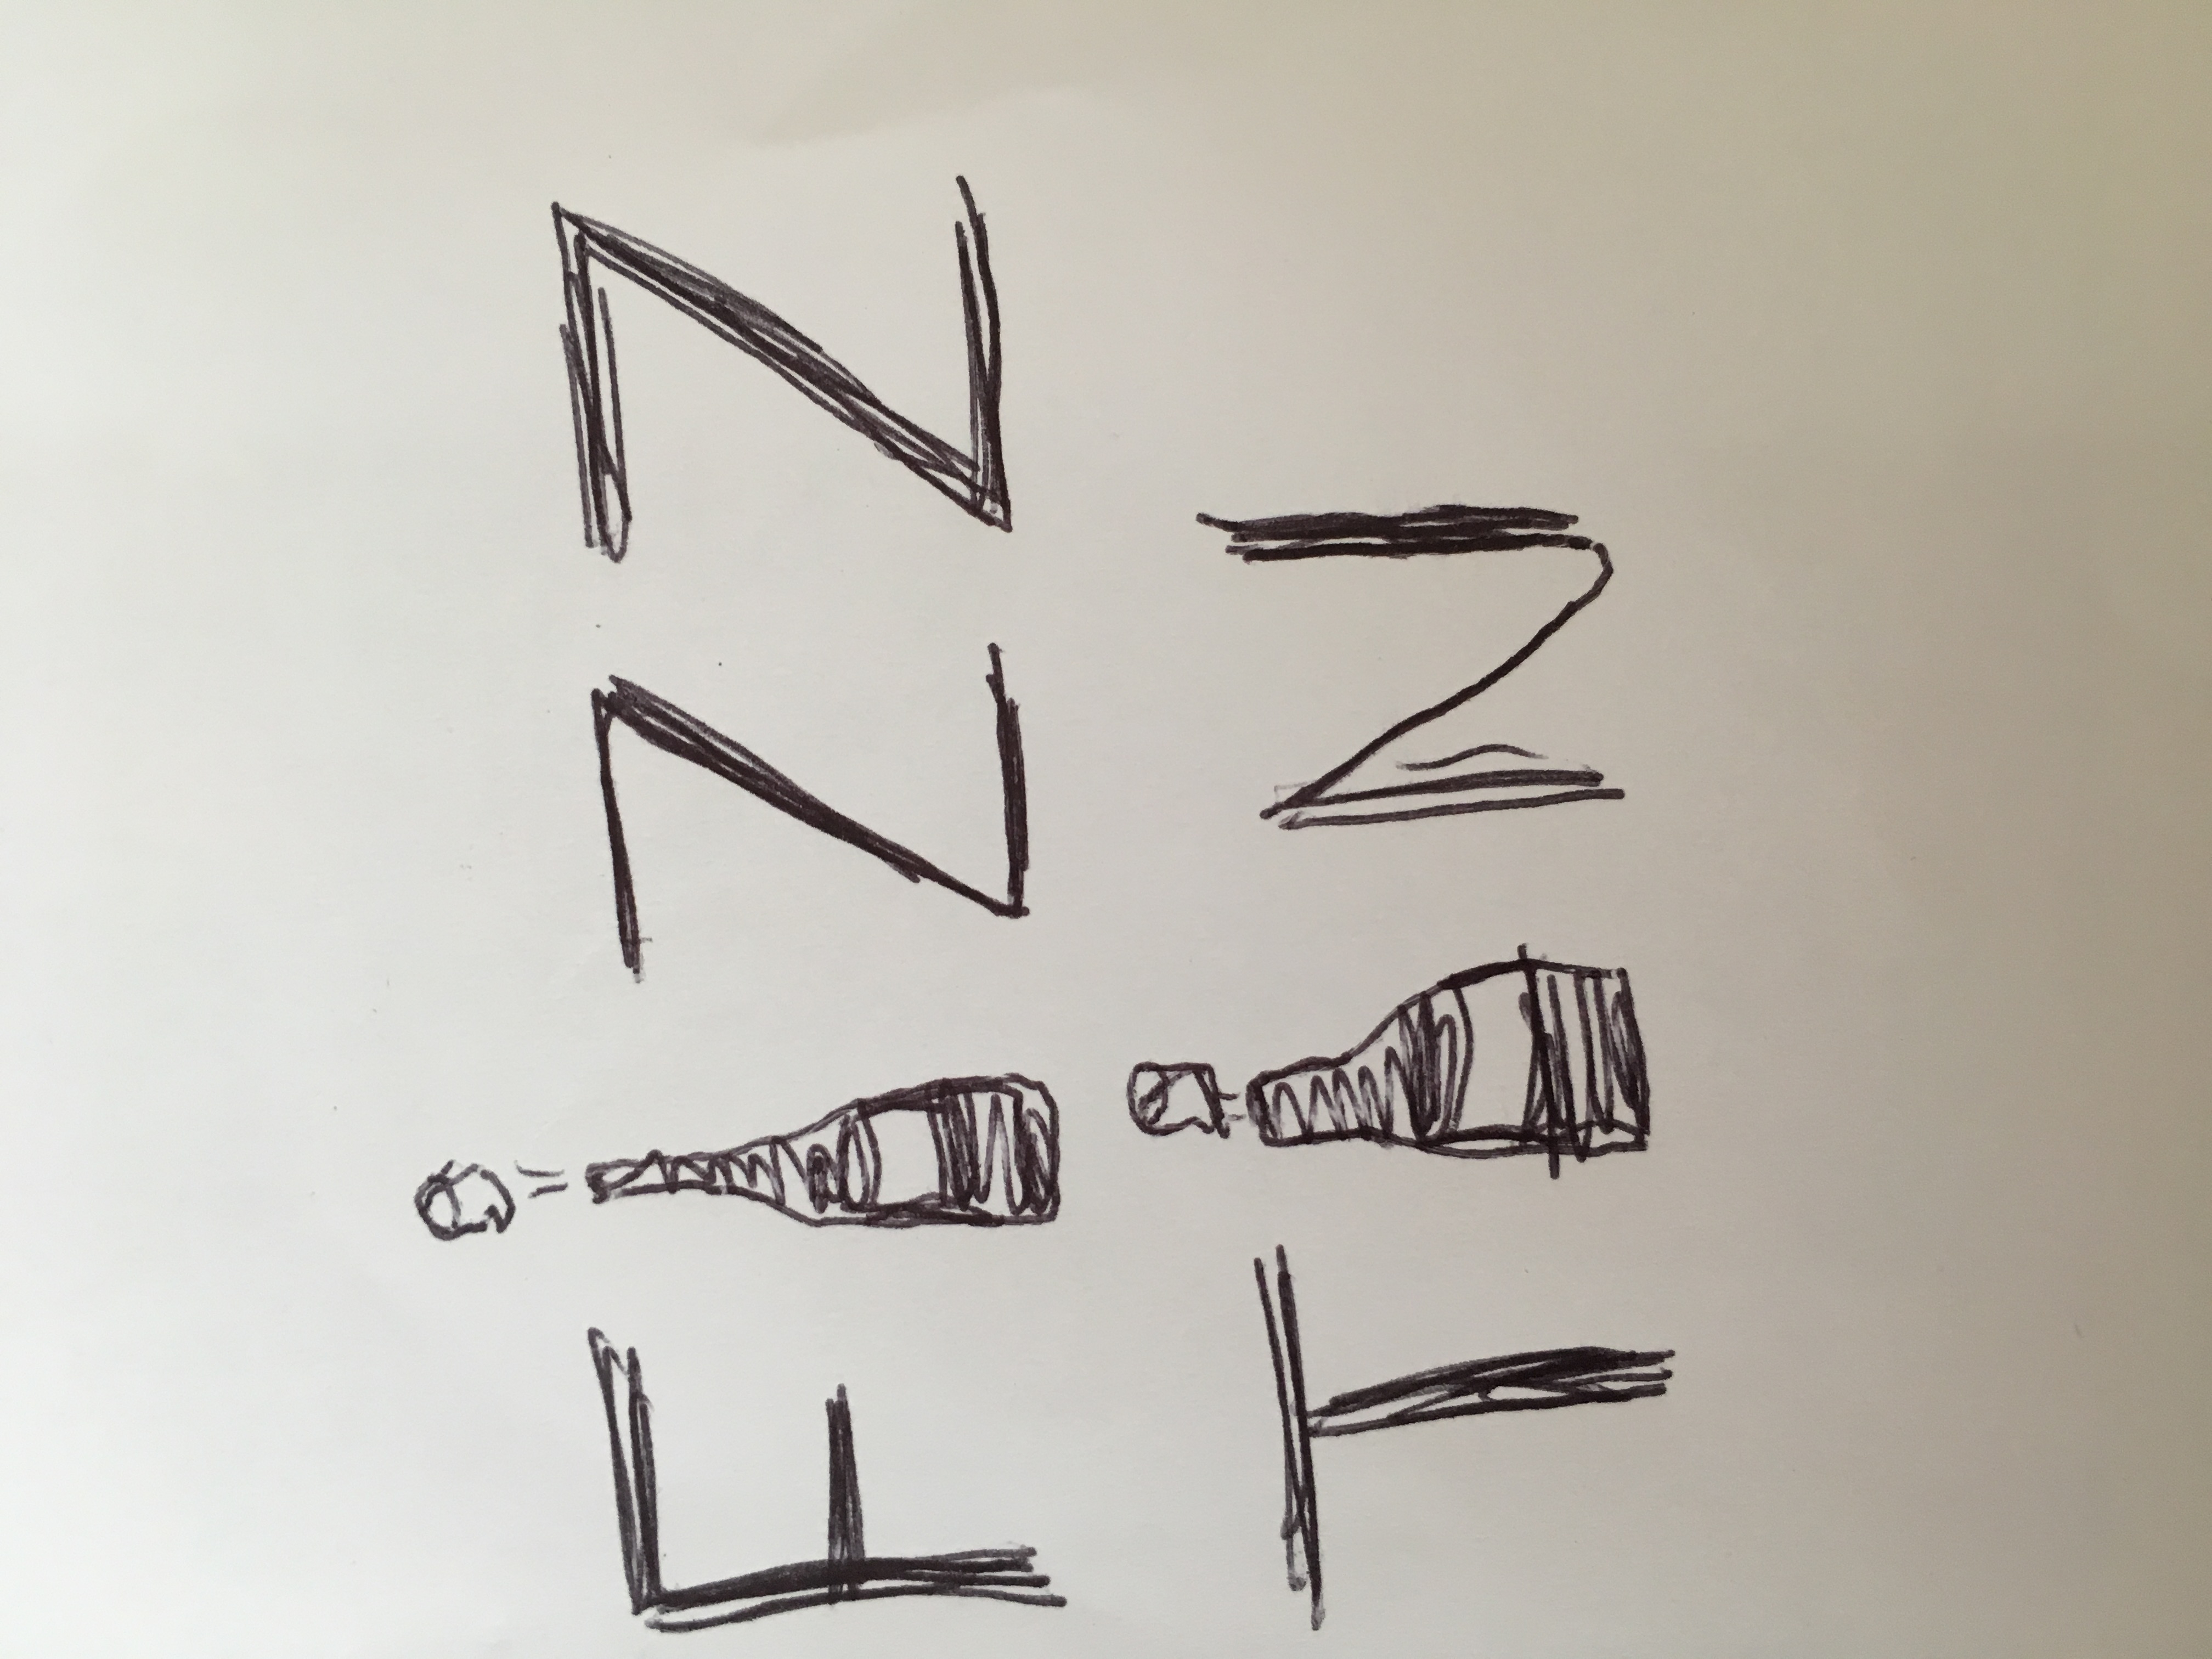 FiZZ
TiN